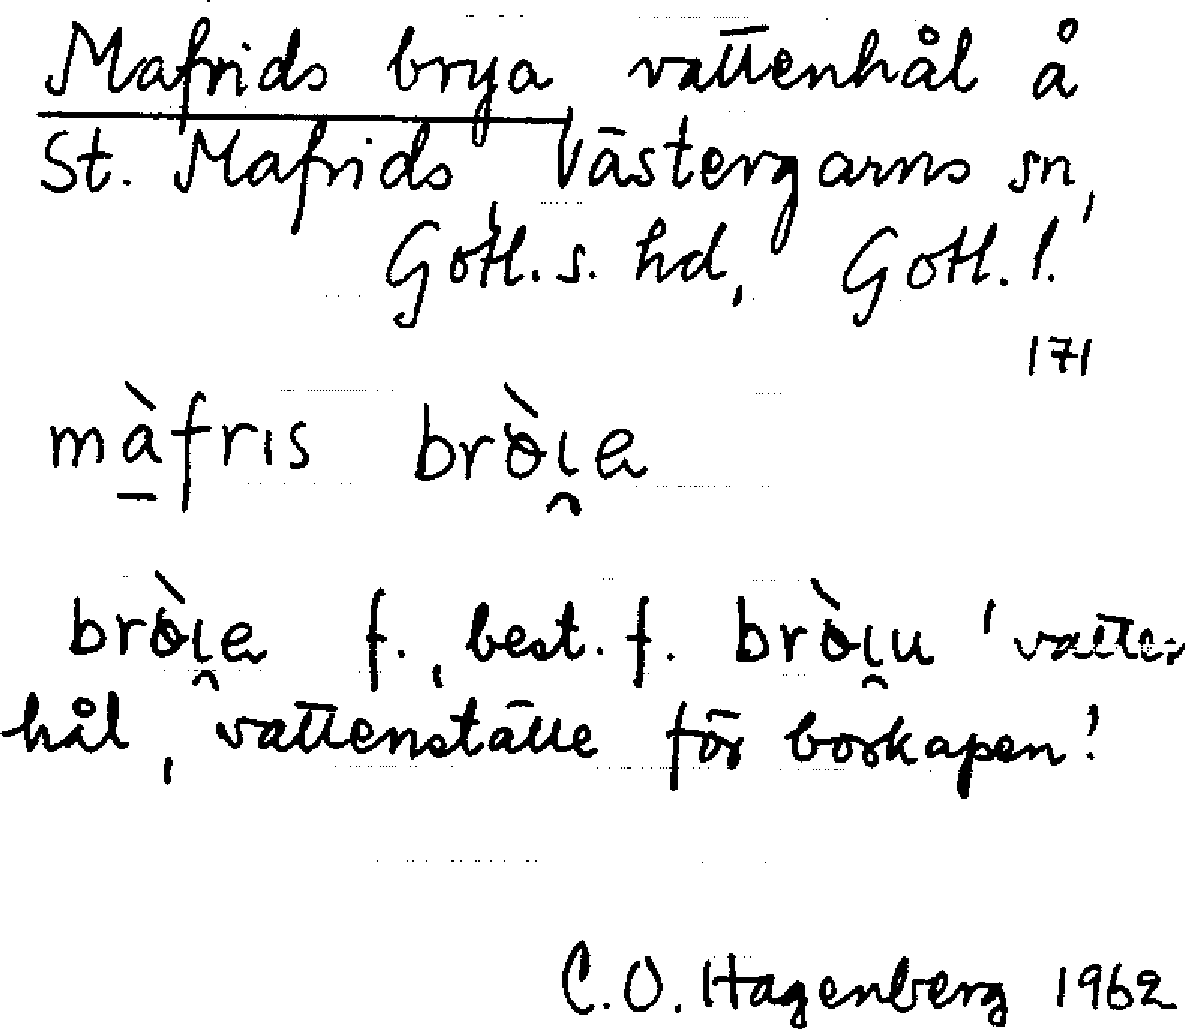 Mafrids brya, vattenhål å
St. Mafrids, Västergarns sn,
Gotl. s. hd, Gotl. l.
171
mà̱fris bròi̯a
bròi̯a f., best. f. bròi̯u 'vatten-
hål, vattenställe för boskapen'.
C.O. Hagenberg 1962